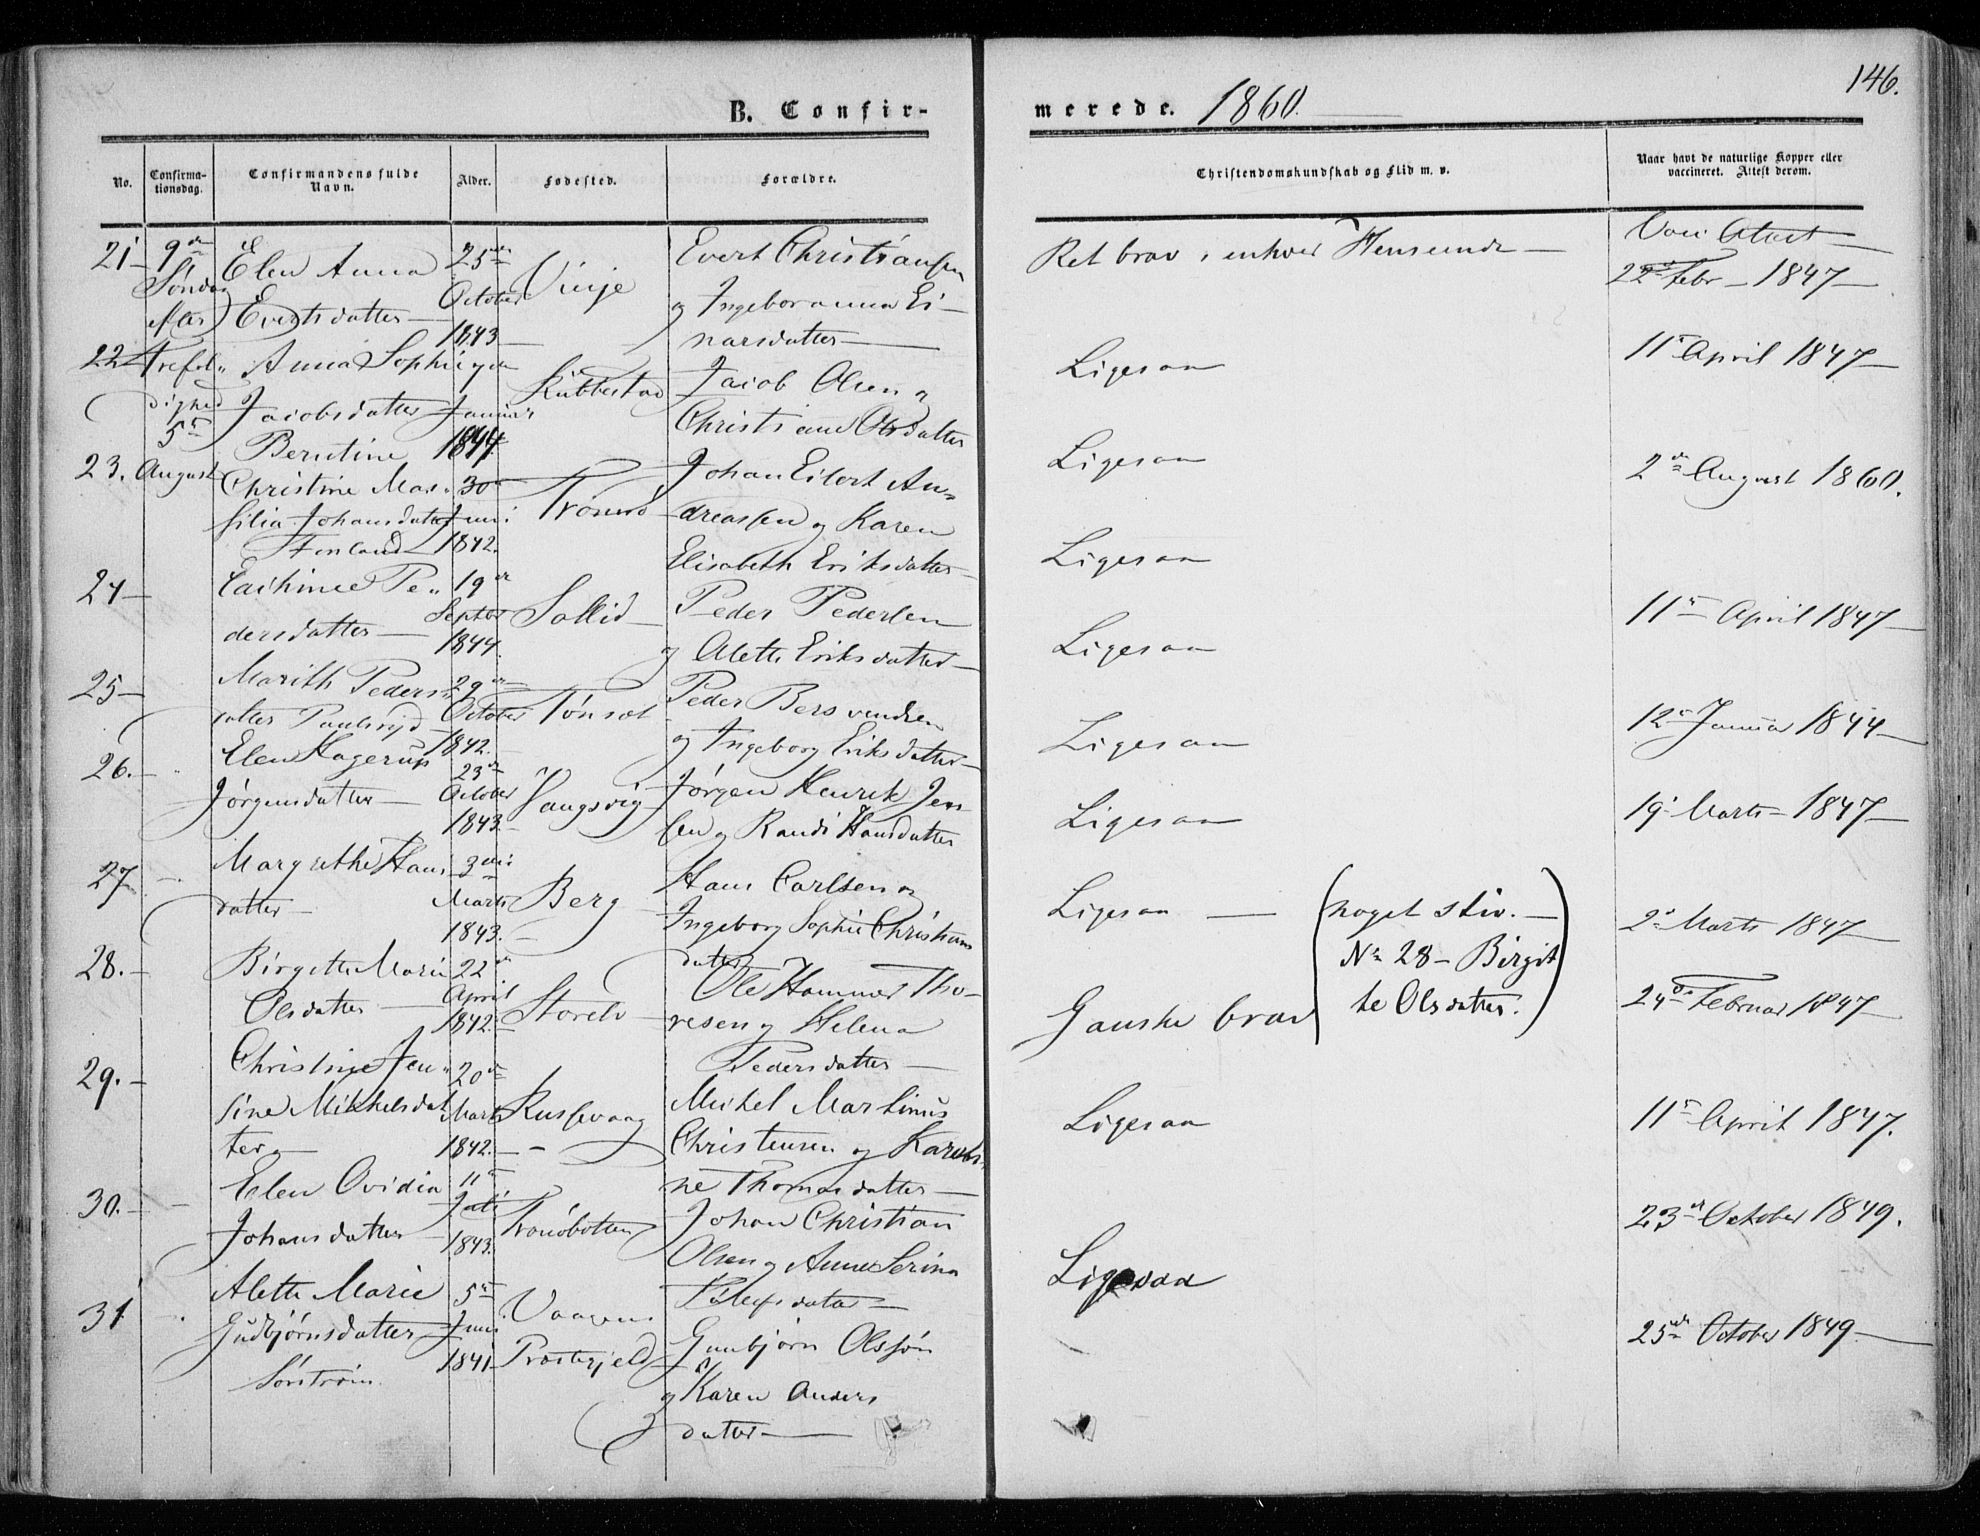 146.
B. Confir-
merede. 1860.
No.
Confirma-
tionsdag.
Confirmandens fulde
Navn.
Alder.
Fødested.
Forældre.
Christendomskundskab og Flid m. v.
Naar havt de naturlige Kopper eller
vaccineret. Attest derom.
21 - 9de
Søndag
efter
Trefol-
dighed
5te
August
Elen Anna
Evertsdatter -
25de
October
1843
Vinje
Evert Christiansen
og Ingeboranna Ei-
narsdatter -
Ret brav i enhver Henseende -
22de Febr - 1847 -
22
Anna Sophie
Jacobsdatter
9de
Januar
1844
Kübbestad
Jacob Olsen og
Christiane Olsdatter
Ligesaa
11te April 1847 -
23.
Berntine
Christine Mar-
silia Johansdatter
Finland
30te
Juni
1842.
Tromsö
Johan Eilert An-
dreassen og Karen
Elisabeth Eriksdatter -
Ligesaa
2den August 1860.
24 -
Pe-
dersdatter -
19de
Septbr
1844.
Sollid -
Peder Pedersen
og Alette Eriksdatter -
Ligesaa
11te April 1847 -
25 -
Marith Peders-
datter
29de
October
1842.
Tönset
Peder Bersvendsen
og Ingeborg Eriksdatter -
Ligesaa
12te Januar 1844 -
26. -
Elen Hagerup
Jørgensdatter -
23de
October
1843. -
Vangsvig
Jørgen Henrik Jen-
sen og Randi Hansdatter
Ligesaa
19. Marts - 1847 -
27 -
Margrethe Hans
datter -
3die
Marts
1843. -
Berg
Hans Carlsen og
Ingeborg Sophie Christians
datter
Ligesaa
2. Marts 1847 -
28. -
Birgitte Marie
Olsdatter -
22de
April
1842. -
Storelv -
Ole Hammer Tho-
resen og Helena
Pedersdatter -
Ligesaa - (noget stiv. -
No 28 - Birgit
te Olsdatter.)
24de Februar 1847 -
Ganske brav
29. -
Christine Jen-
sine Mikkelsdat
ter -
20de
Marts
1842. -
Russevaag
Mikel Martinus
Christensen og
ne Thomasdatter -
Ligesaa
11te April 1847.
30. -
Elen Ovidia
Johansdatter -
11te
Juli
1843.
Johan Christian
Olsen og Anne Serina
23de October 1849.
31
Alette Marie
Gudbjørnsdatter
5te
Juni
1841 -
Vaagens
Prestegjeld
Gunbjørn Olssön
og Karen Anders
datter -
Ligesaa
25de October 1849. -